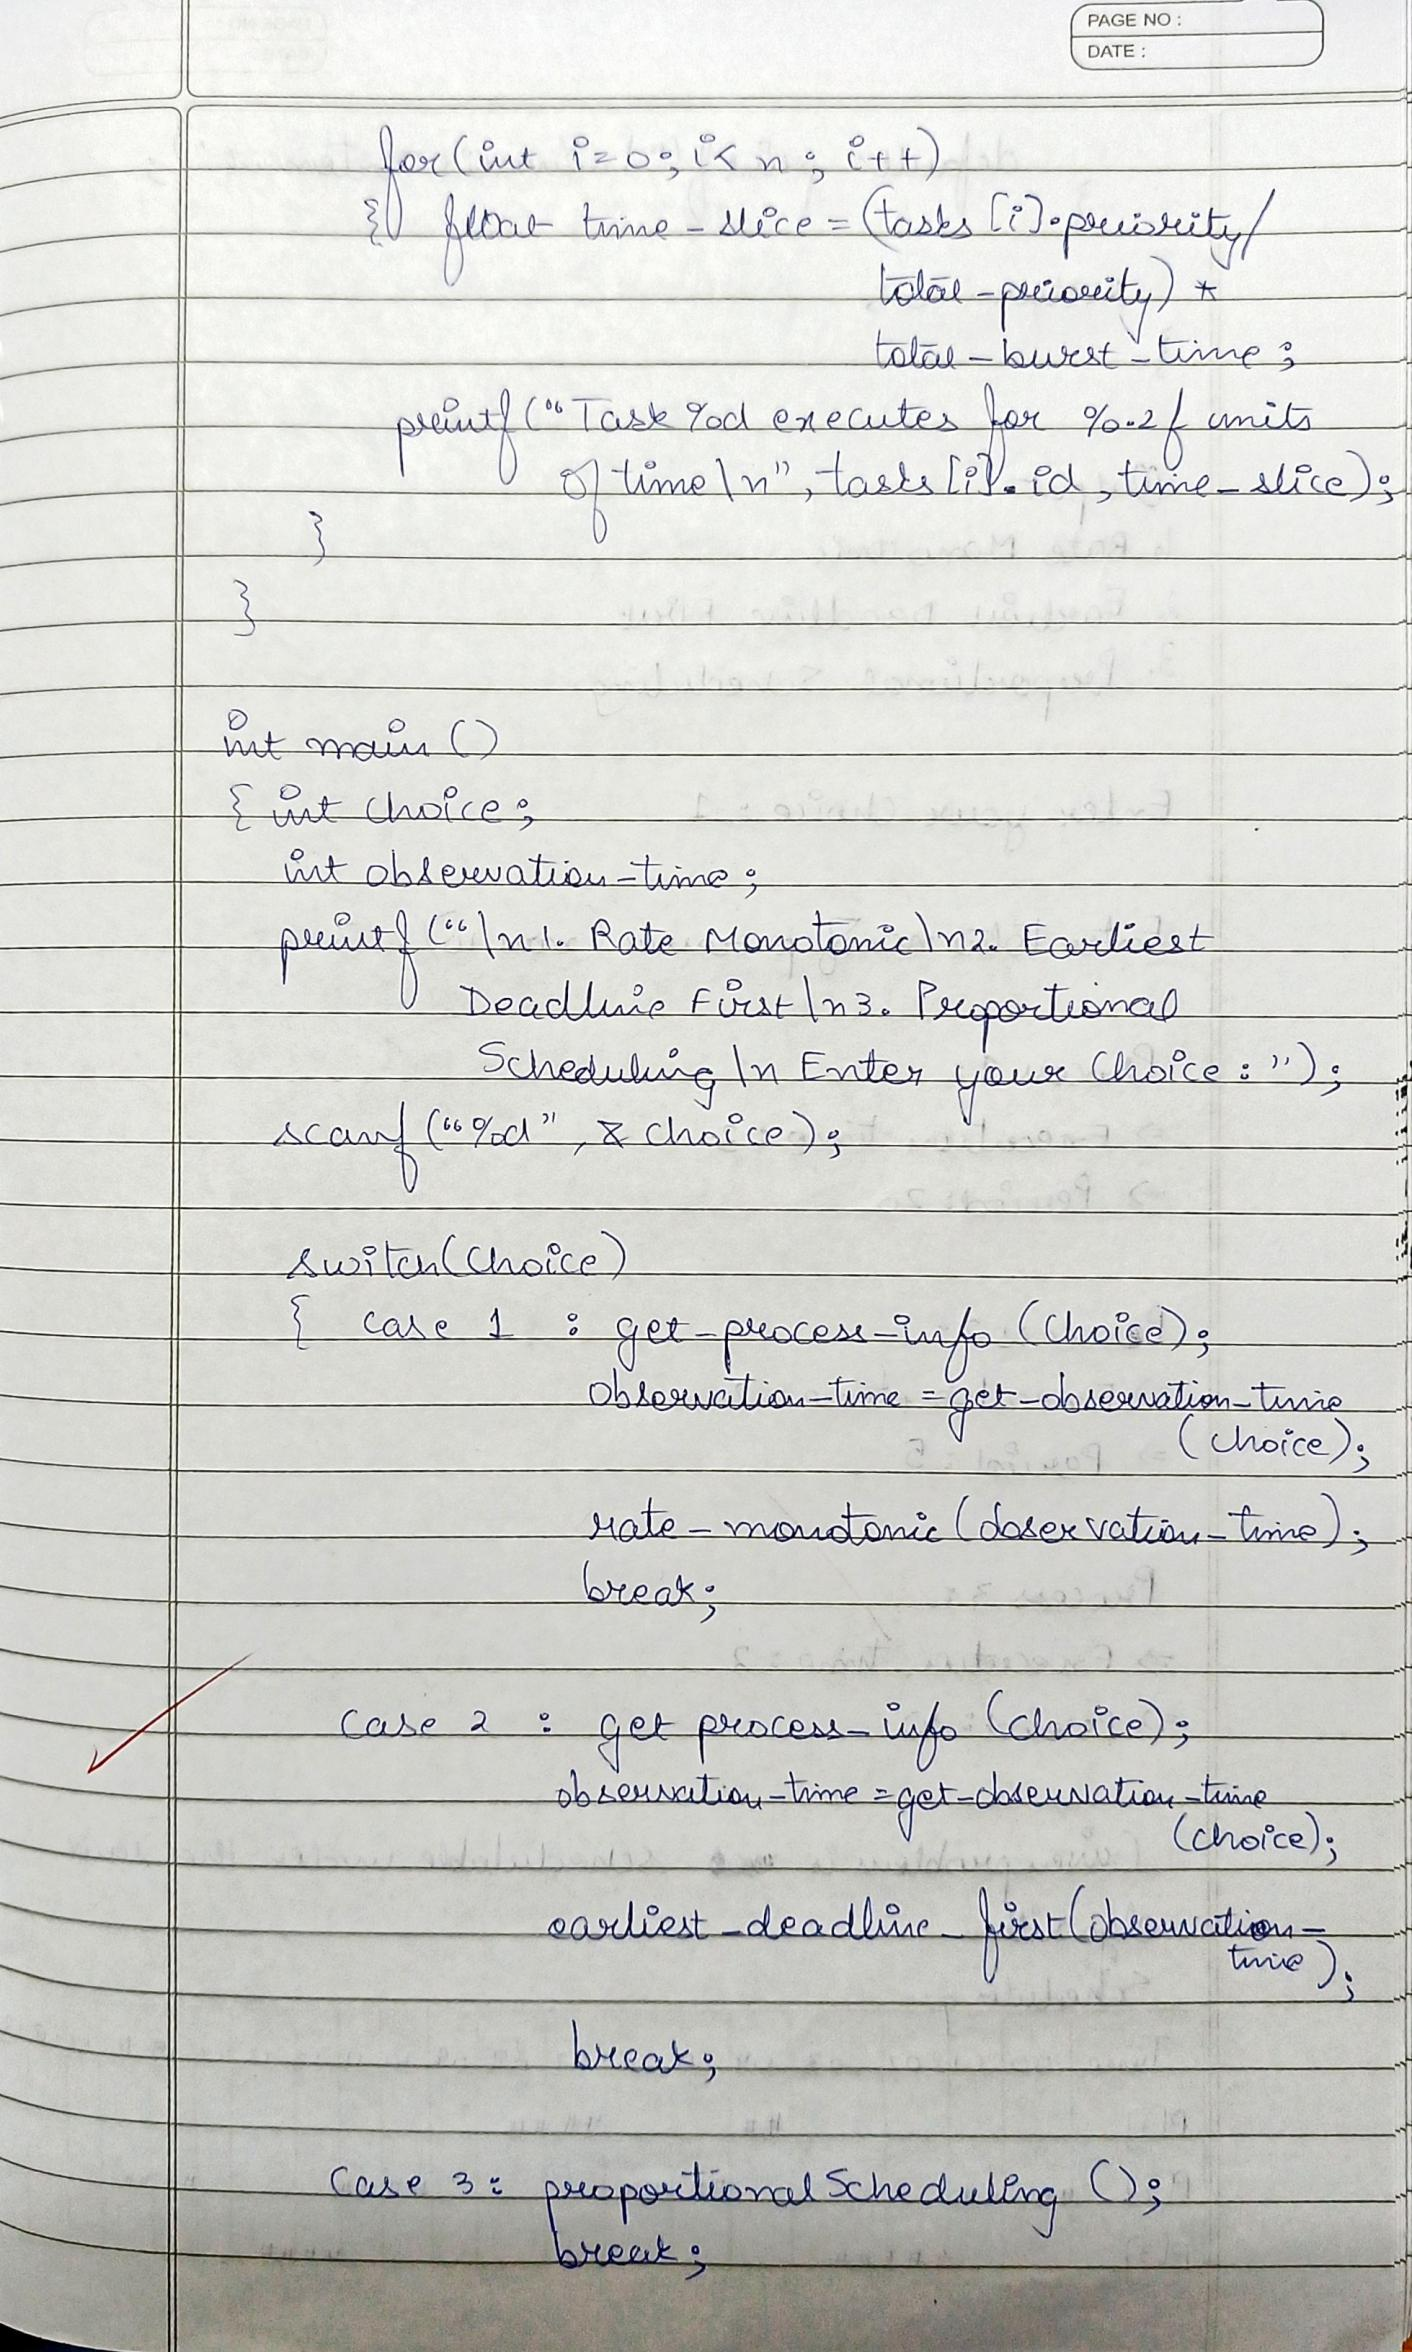 PAGE NO :
DATE :
for(int i=0; i<n; i++)
{ float time-slice = (tasks[i].priority/
total-priority) *
total-burst-time;
printf("Task %d executes for %.2f units
of time\n", tasks[i].id, time-slice);
}
}
int main()
{ int choice;
int observation-time;
printf("\n1. Rate Monotonic\n2. Earliest
Deadline First\n3. Proportional
Scheduling\n Enter your Choice: ");
scanf("%d", &choice);
switch(choice)
{ case 1 : get-process-info(choice);
observation-time = get-observation-time
(choice);
rate-monotonic(observation-time);
break;
case 2 : get process-info(choice);
observation-time = get-observation-time
(choice);
earliest-deadline-first(observation-
time);
break;
case 3: proportionalScheduling();
break;